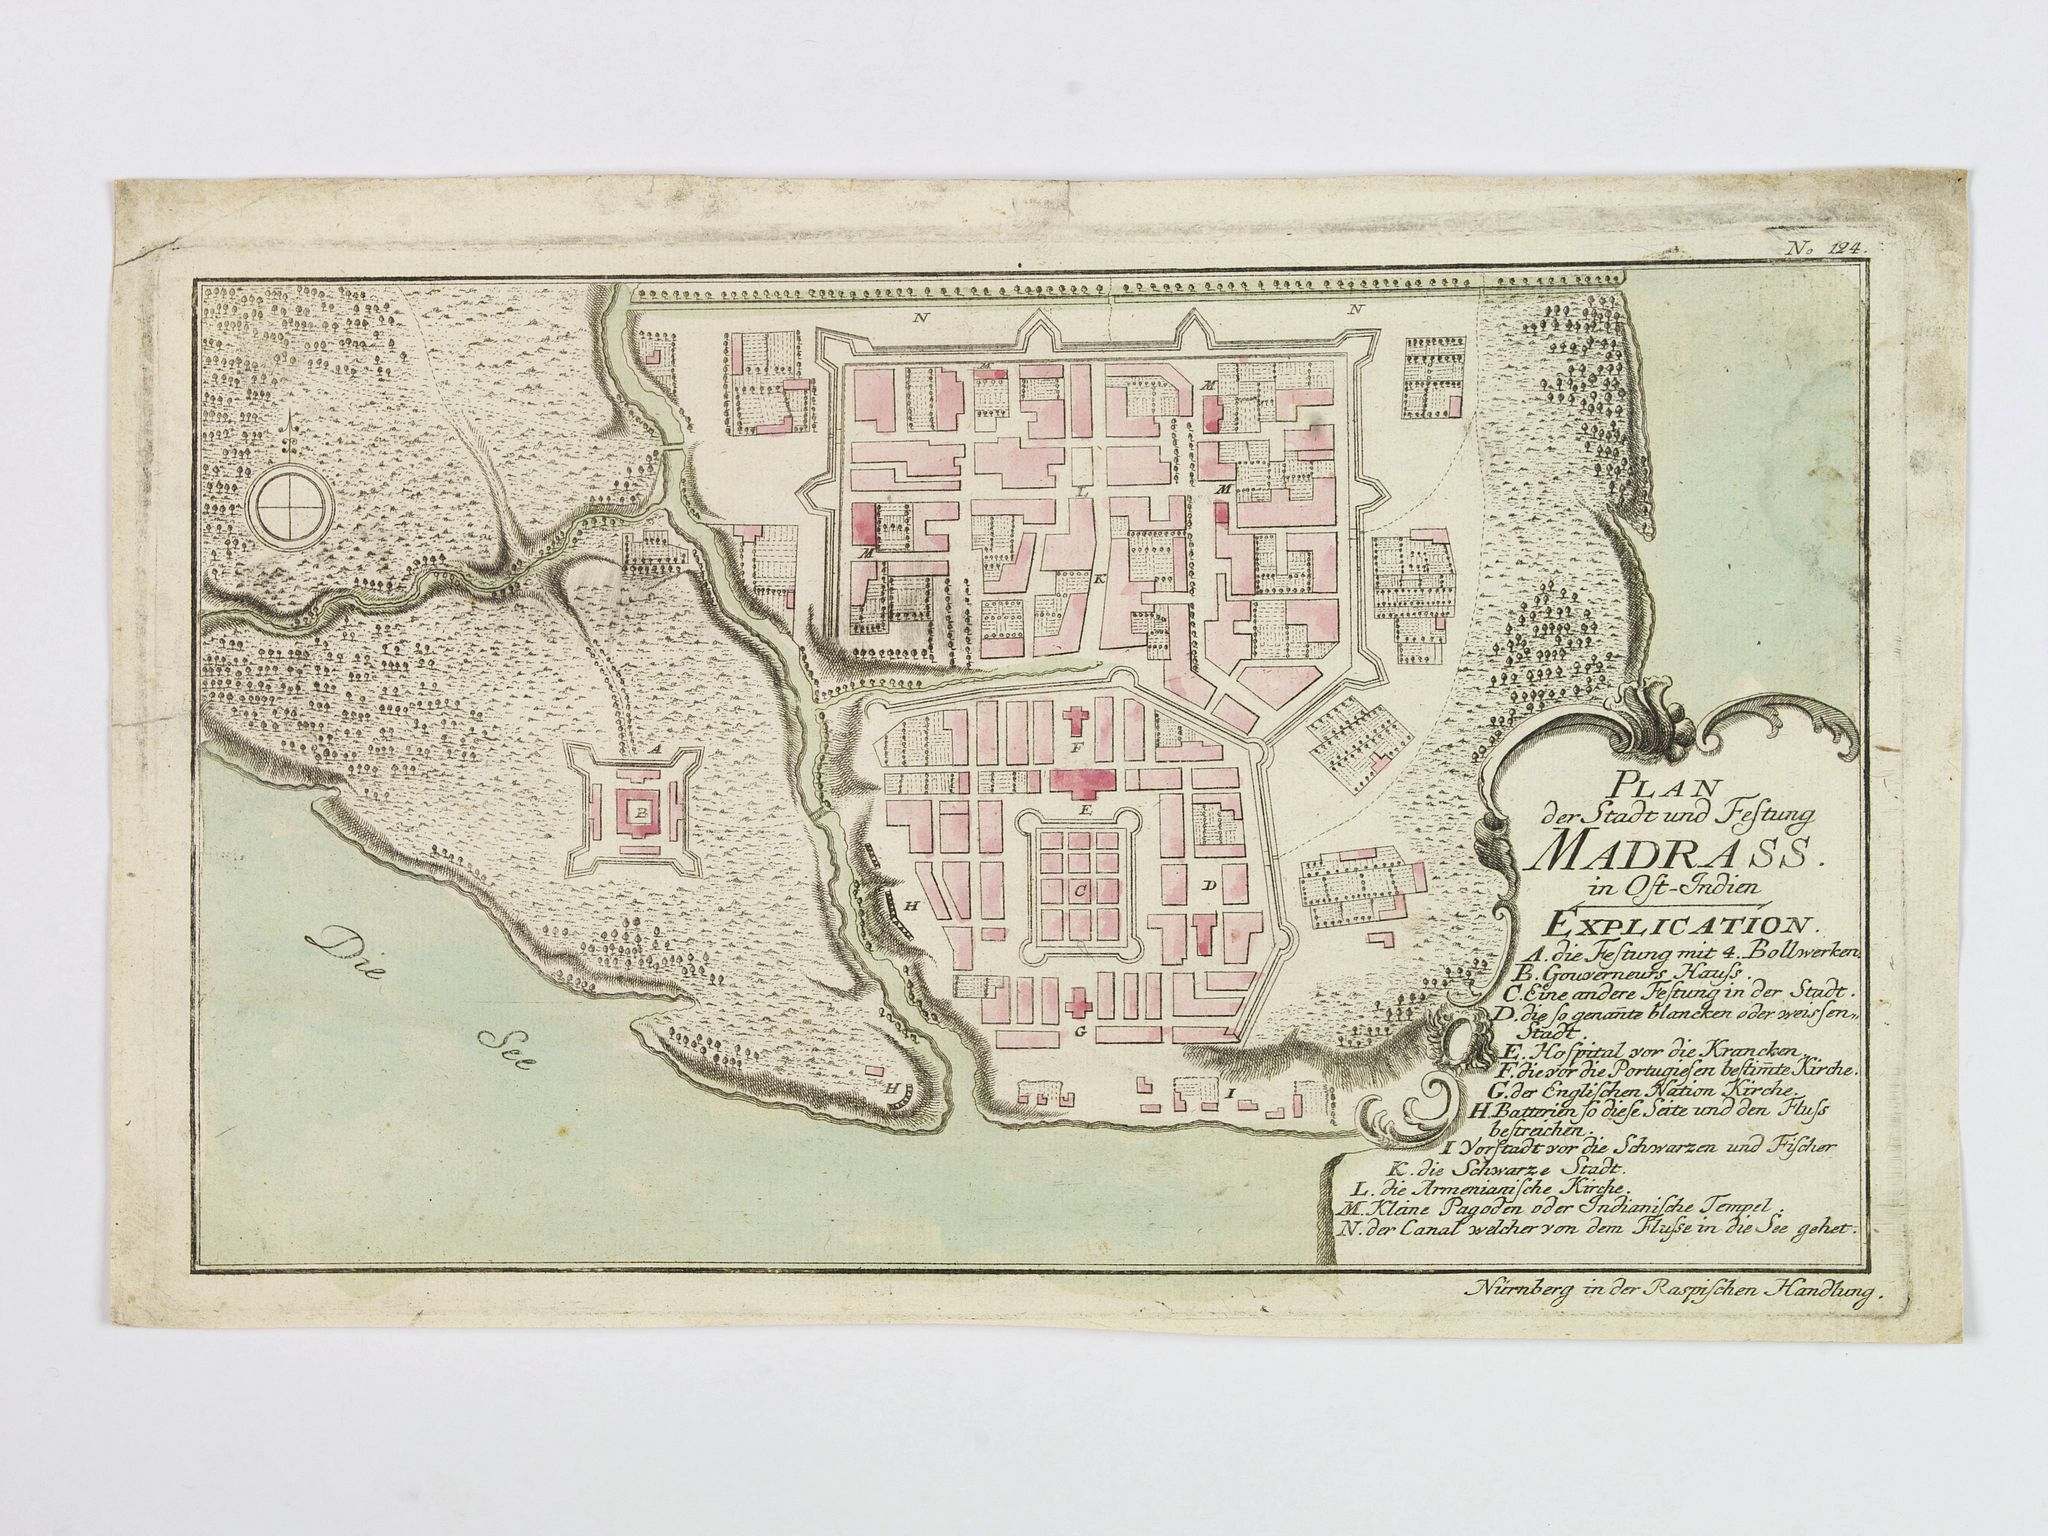 No 124.
N
N
M
M
L
M
M
K
A
B
F
E
C
D
H
G
H
I
Die
See
PLAN
der Stadt und Feſtung
MADRASS.
in Oſt-Indien
EXPLICATION.
A. die Feſtung mit 4. Bollwerken
B. Gouverneurs Hauſs.
C. Eine andere Feſtung in der Stadt.
D. die ſo genante blancken oder weiſsen„
Stadt.
E. Hoſpital vor die Krancken.
F. die vor die Portugieſen beſtim̅te Kirche.
G. der Engliſchen Nation Kirche.
H. Batterien ſo dieſe Seite und den Fluſs
beſtreichen.
I Vorſtadt vor die Schwarzen und Fiſcher
K. die Schwarze Stadt.
L. die Armenianiſche Kirche.
M. Kleine Pagoden oder Indianiſche Tempel.
N. der Canal welcher von dem Fluſse in die See gehet.
Nürnberg in der Raspiſchen Handlung.